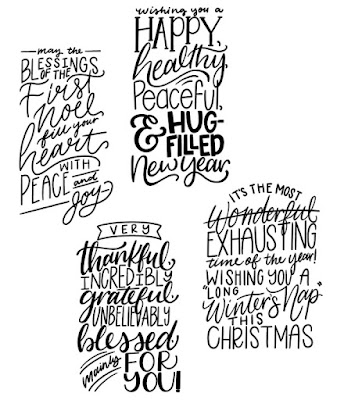 may the
BLESSINGS
OF THE
First
noel
fill your
heart
WITH
PEACE and
joy
wishing you a
HAPPY,
healthy,
Peaceful,
& HUG-
FILLED
New year
VERY
thankful,
INCREDIBLY
grateful
UNBELIEVABLY
blessed
mainly FOR
YOU!
IT'S THE MOST
Wonderful
EXHAUSTING
time of the year!
WISHING YOU A
"LONG
Winter's Nap"
THIS
CHRISTMAS